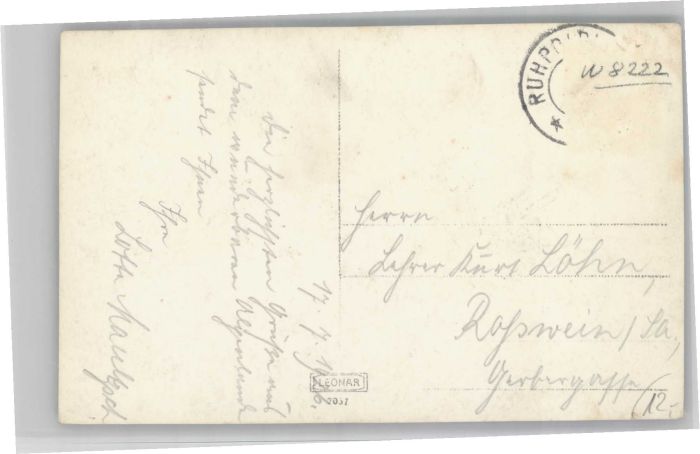 17. 7. 1936.
Die herzlichsten Grüße aus
dem wunderbaren Alpenlande
sendet Ihnen
Ihre
Lotte
RUHPOLDI
W 8222
Herrn
Lehrer Kurt Löhn,
Roßwein / Sa,
Gerbergasse
12.-
LEONAR
2037